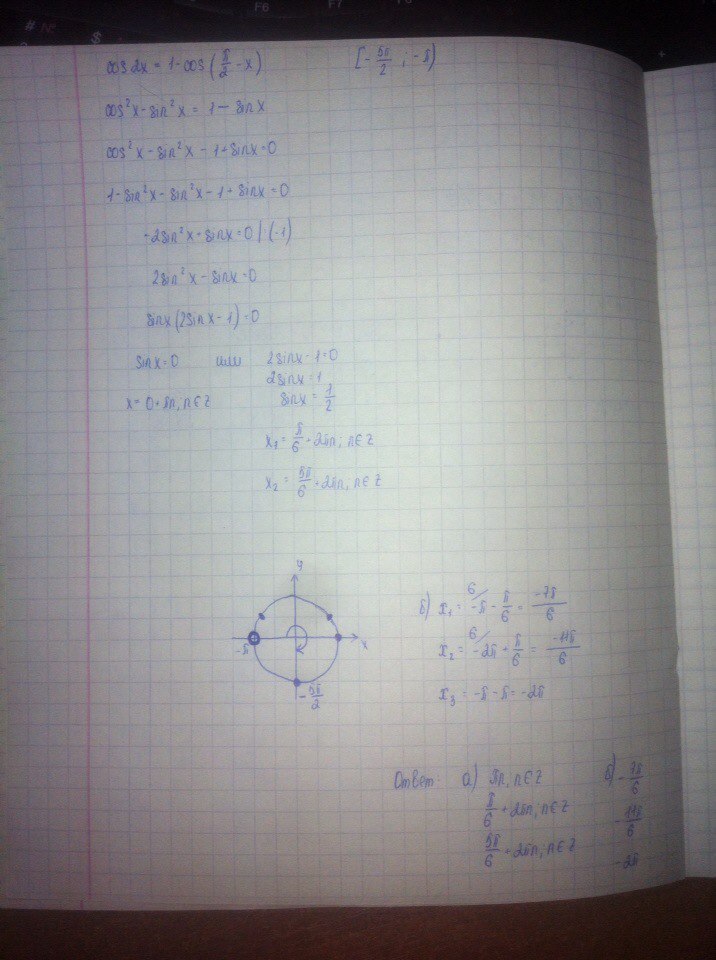 cos 2x = 1 - cos (π/2 - x)    [-5π/2 ; -π)
cos²x - sin²x = 1 - sin x
cos²x - sin²x - 1 + sin x = 0
1 - sin²x - sin²x - 1 + sin x = 0
-2sin²x + sin x = 0 | (-1)
2sin²x - sin x = 0
sin x (2sin x - 1) = 0
sin x = 0    или    2sin x - 1 = 0
2sin x = 1
x = 0 + πn, n ∈ Z    sin x = 1/2
x₁ = π/6 + 2πn; n ∈ Z
x₂ = 5π/6 + 2πn, n ∈ Z
y
x
-π
-5π/2
б) x₁ = 6/ -π - π/6 = -7π/6
x₂ = 6/ -2π + π/6 = -11π/6
x₃ = -π - π = -2π
Ответ: а) πn, n ∈ Z    б) -7π/6
π/6 + 2πn, n ∈ Z    -11π/6
5π/6 + 2πn, n ∈ Z    -2π
F6
F7
#
$